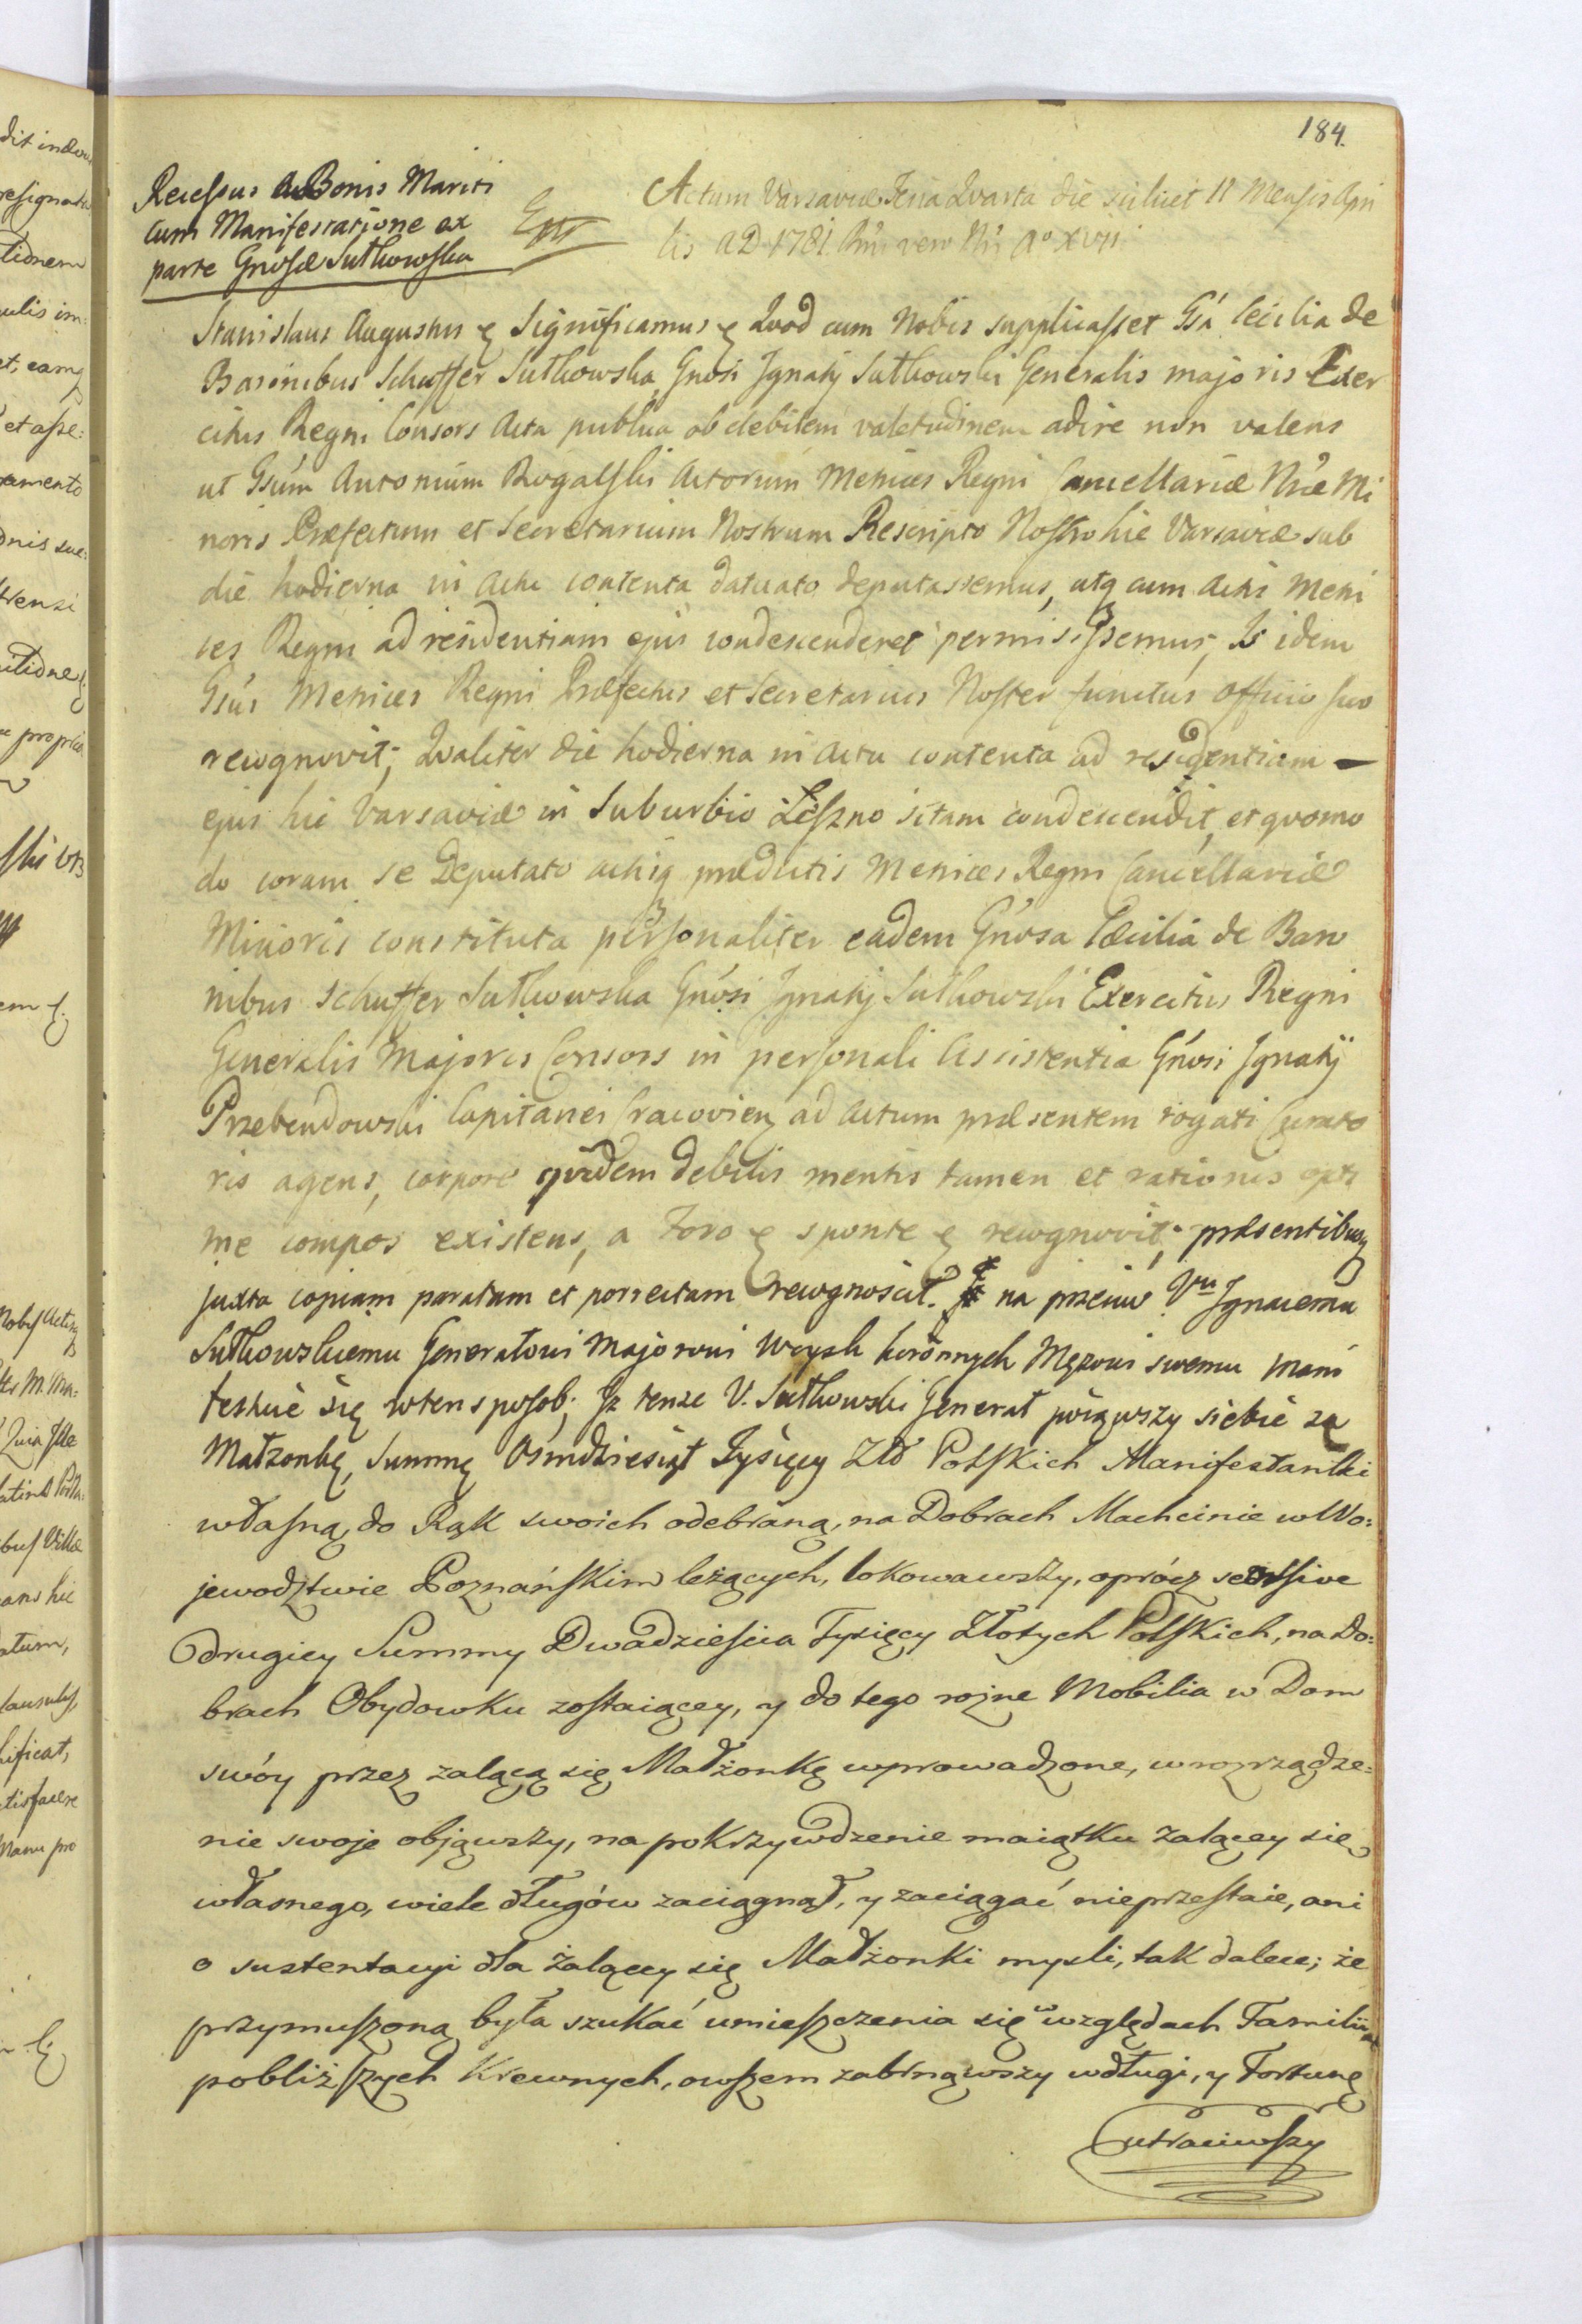 184.
Recessus de Bonis Mariti
cum Manifestatione ex
parte Gnosæ Sułkowska
Actum Varsaviæ Feria Qvarta die scilicet 11 Mensis Apri
lis A D 1781 Rñi vero Nri Aº XVII
Stanislaus Augustus ꝛ Significamus ꝛ Qvod cum Nobis supplicasset Gsa Cecilia de
Baronibus Schuffer Sułkowska Gnosi Jgnatij Sułkowski Generalis majoris Exer
citus Regni Consors Acta publica ob debilem valetudinem adire non valens
ut Gsum Antonium Rogalski Actorum Metrices Regni Cancellariæ Nræ Mi
noris Præfectum et Secretarium Nostrum Rescripto Nostro hic Varsaviæ sub
die hodierna in Actu contenta datuato deputassemus, utq cum Actis Metri
ces Regni ad residentiam ejus condescenderet permisissemus, Is idem
Gsus Metrices Regni Præfectus et Secretarius Noster functus officio suo
recognovit; Qvaliter die hodierna in Actu contenta ad residentiam —
ejus hic Varsaviæ in Suburbio Leszno sitam condescendit, et qvomo
do coram se Deputato actisq prædictis Metrices Regni Cancellariæ
Minoris constituta personaliter eadem Gnosa Cæcilia de Baro
nibus Schuffer Sułkowska Gnosi Jgnatij Sułkowski Exercitus Regni
Generalis Majoris Consors in personali Assistentia Gnosi Jgnatij
Przebendowski Capitanei Cracovien ad Actum præsentem rogati Curato
ris agens, corpore qvidem debilis mentis tamen et rationis opti
me compos existens, a Foro ꝛ sponte ꝛ recognovit; præsentibusq
juxta copiam paratam et porrectam recognoscit. na przeciw Vmu Jgnacemu
Sułkowskiemu Generałowi Majorowi Woysk koronnych Mężowi swemu mani
festuie się wten sposob; Jż tenże V. Sułkowski Generał poiąwszy siebie za
Małzonkę, Summę Osmdziesiąt Tysięcy Złł Polskich Manifestantki
własną, do Rąk swoich odebraną, na Dobrach Machcinie w Wo:
jewodztwie Poznańskim leżących, lokowawszy, oprócz seorsive
drugiey Summy Dwadziescia Tysięcy Złotych Polskich, na Do:
brach Obydowku zostaiącey, y do tego rożne Mobilia w Dom
swóy przez zalącą się Małżonkę wprowadzone, w rozrządze:
nie swoje objąwszy, na pokrzywdzenie maiątku żalącey się
własnego, wiele długów zaciągnął, y zaciągać nieprzestaie, ani
o sustentacyi dla żalącey się Małżonki mysli, tak dalece; że
przymuszoną była szukać umieszczenia się w względach Familii
pobliższych Krewnych, owszem zabrnąwszy w długi, y Fortunę
utraciwszy